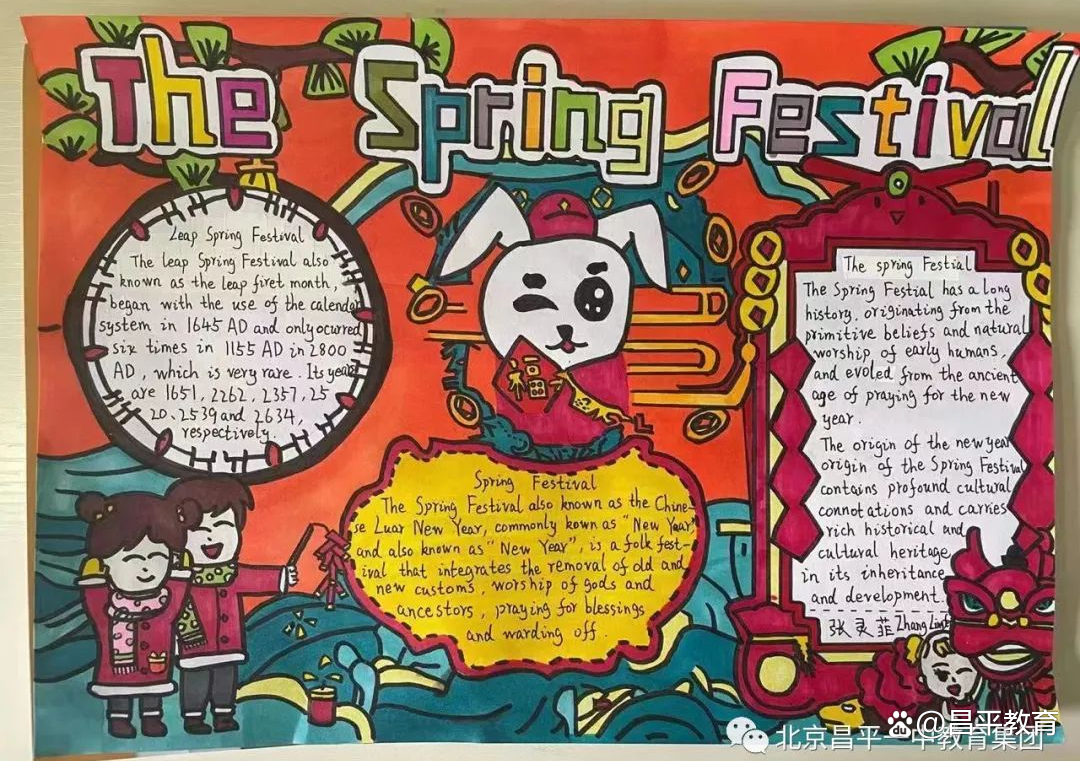 The Spring Festival
Leap Spring Festival
The leap Spring Festival also
known as the leap firet month,
began with the use of the calendar
system in 1645 AD and only ocurred
six times in 1155 AD in 2800
AD, which is very rare. Its year
are 1651, 2262, 2357, 25
20, 2539 and 2634,
respectively.
福
Spring Festival
The Spring Festival also known as the Chine-
se Luar New Year, commonly kown as "New Year"
and also known as "New Year", is a folk fest-
ival that integrates the removal of old and
new customs, worship of gods and
ancestors, praying for blessings
and warding off.
The spring Festial
The Spring Festial has a long
history, originating from the
primitive beliefs and natural
worship of early humans,
and evoled from the ancient
age of praying for the new
year.
The origin of the new year
origin of the Spring Festival
contains profound cultural
connotations and carries
rich historical and
cultural heritage
in its inheritance
and development.
张灵菲 Zhang
@昌平教育
北京昌平一中教育集团